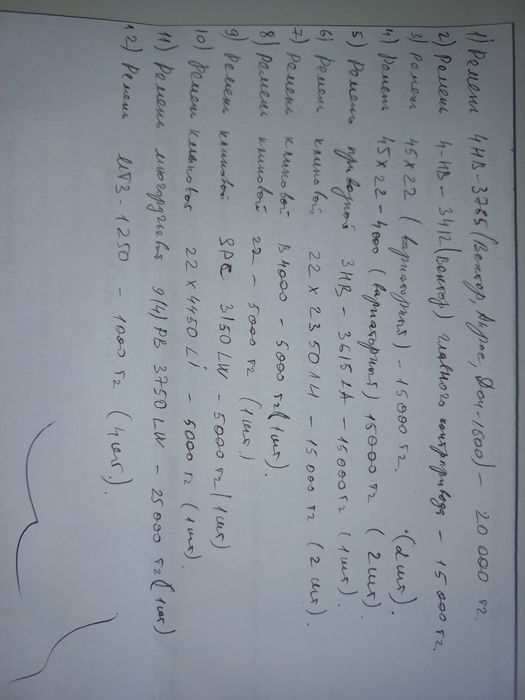 1) Ремень 4НВ-3785 (Вектор, Акрос, Дон-1500) - 20 000 тг.
2) Ремень 4-НВ-3412 (Вектор) главного контрпривода - 15 000 тг.
3) Ремень 45х22 (вариаторный) - 15000 тг. (2 шт).
4) Ремень 45х22-4000 (вариаторный) 15000 тг (2 шт).
5) Ремень приводной 3НВ-3615LA - 15000 тг (1 шт).
6) Ремень клиновой 22х2350 LH - 15 000 тг (2 шт).
7) Ремень клиновой В4000 - 5000 тг (1 шт).
8) Ремень клиновой 22 - 5000 тг (1 шт)
9) Ремень клиновой SPC 3150 LW - 5000 тг (1 шт)
10) Ремень клиновой 22х4450 Li - 5000 тг (1 шт).
11) Ремень многоручьевой 9(4) РВ 3750 LW - 25000 тг (1 шт)
12) Ремень МТЗ-1250 - 1000 тг (4 шт).